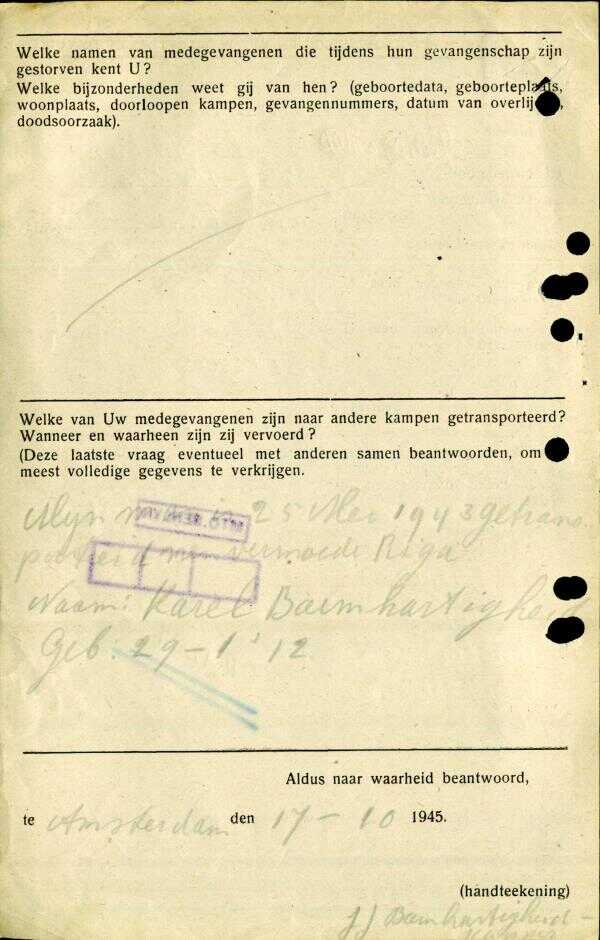 Welke namen van medegevangenen die tijdens hun gevangenschap zijn
gestorven kent U?
Welke bijzonderheden weet gij van hen? (geboortedata, geboorteplaats,
woonplaats, doorloopen kampen, gevangennummers, datum van overlij
doodsoorzaak).
Welke van Uw medegevangenen zijn naar andere kampen getransporteerd?
Wanneer en waarheen zijn zij vervoerd?
(Deze laatste vraag eventueel met anderen samen beantwoorden, om
meest volledige gegevens te verkrijgen.
Mijn man is 25 Mei 1943 getrans-
porteerd vermoede Riga
Naam: Karel Barmhartigheid
Geb. 29-1-'12
Aldus naar waarheid beantwoord,
te Amsterdam den 17-10 1945.
(handteekening)
J J Barmhartigheid-